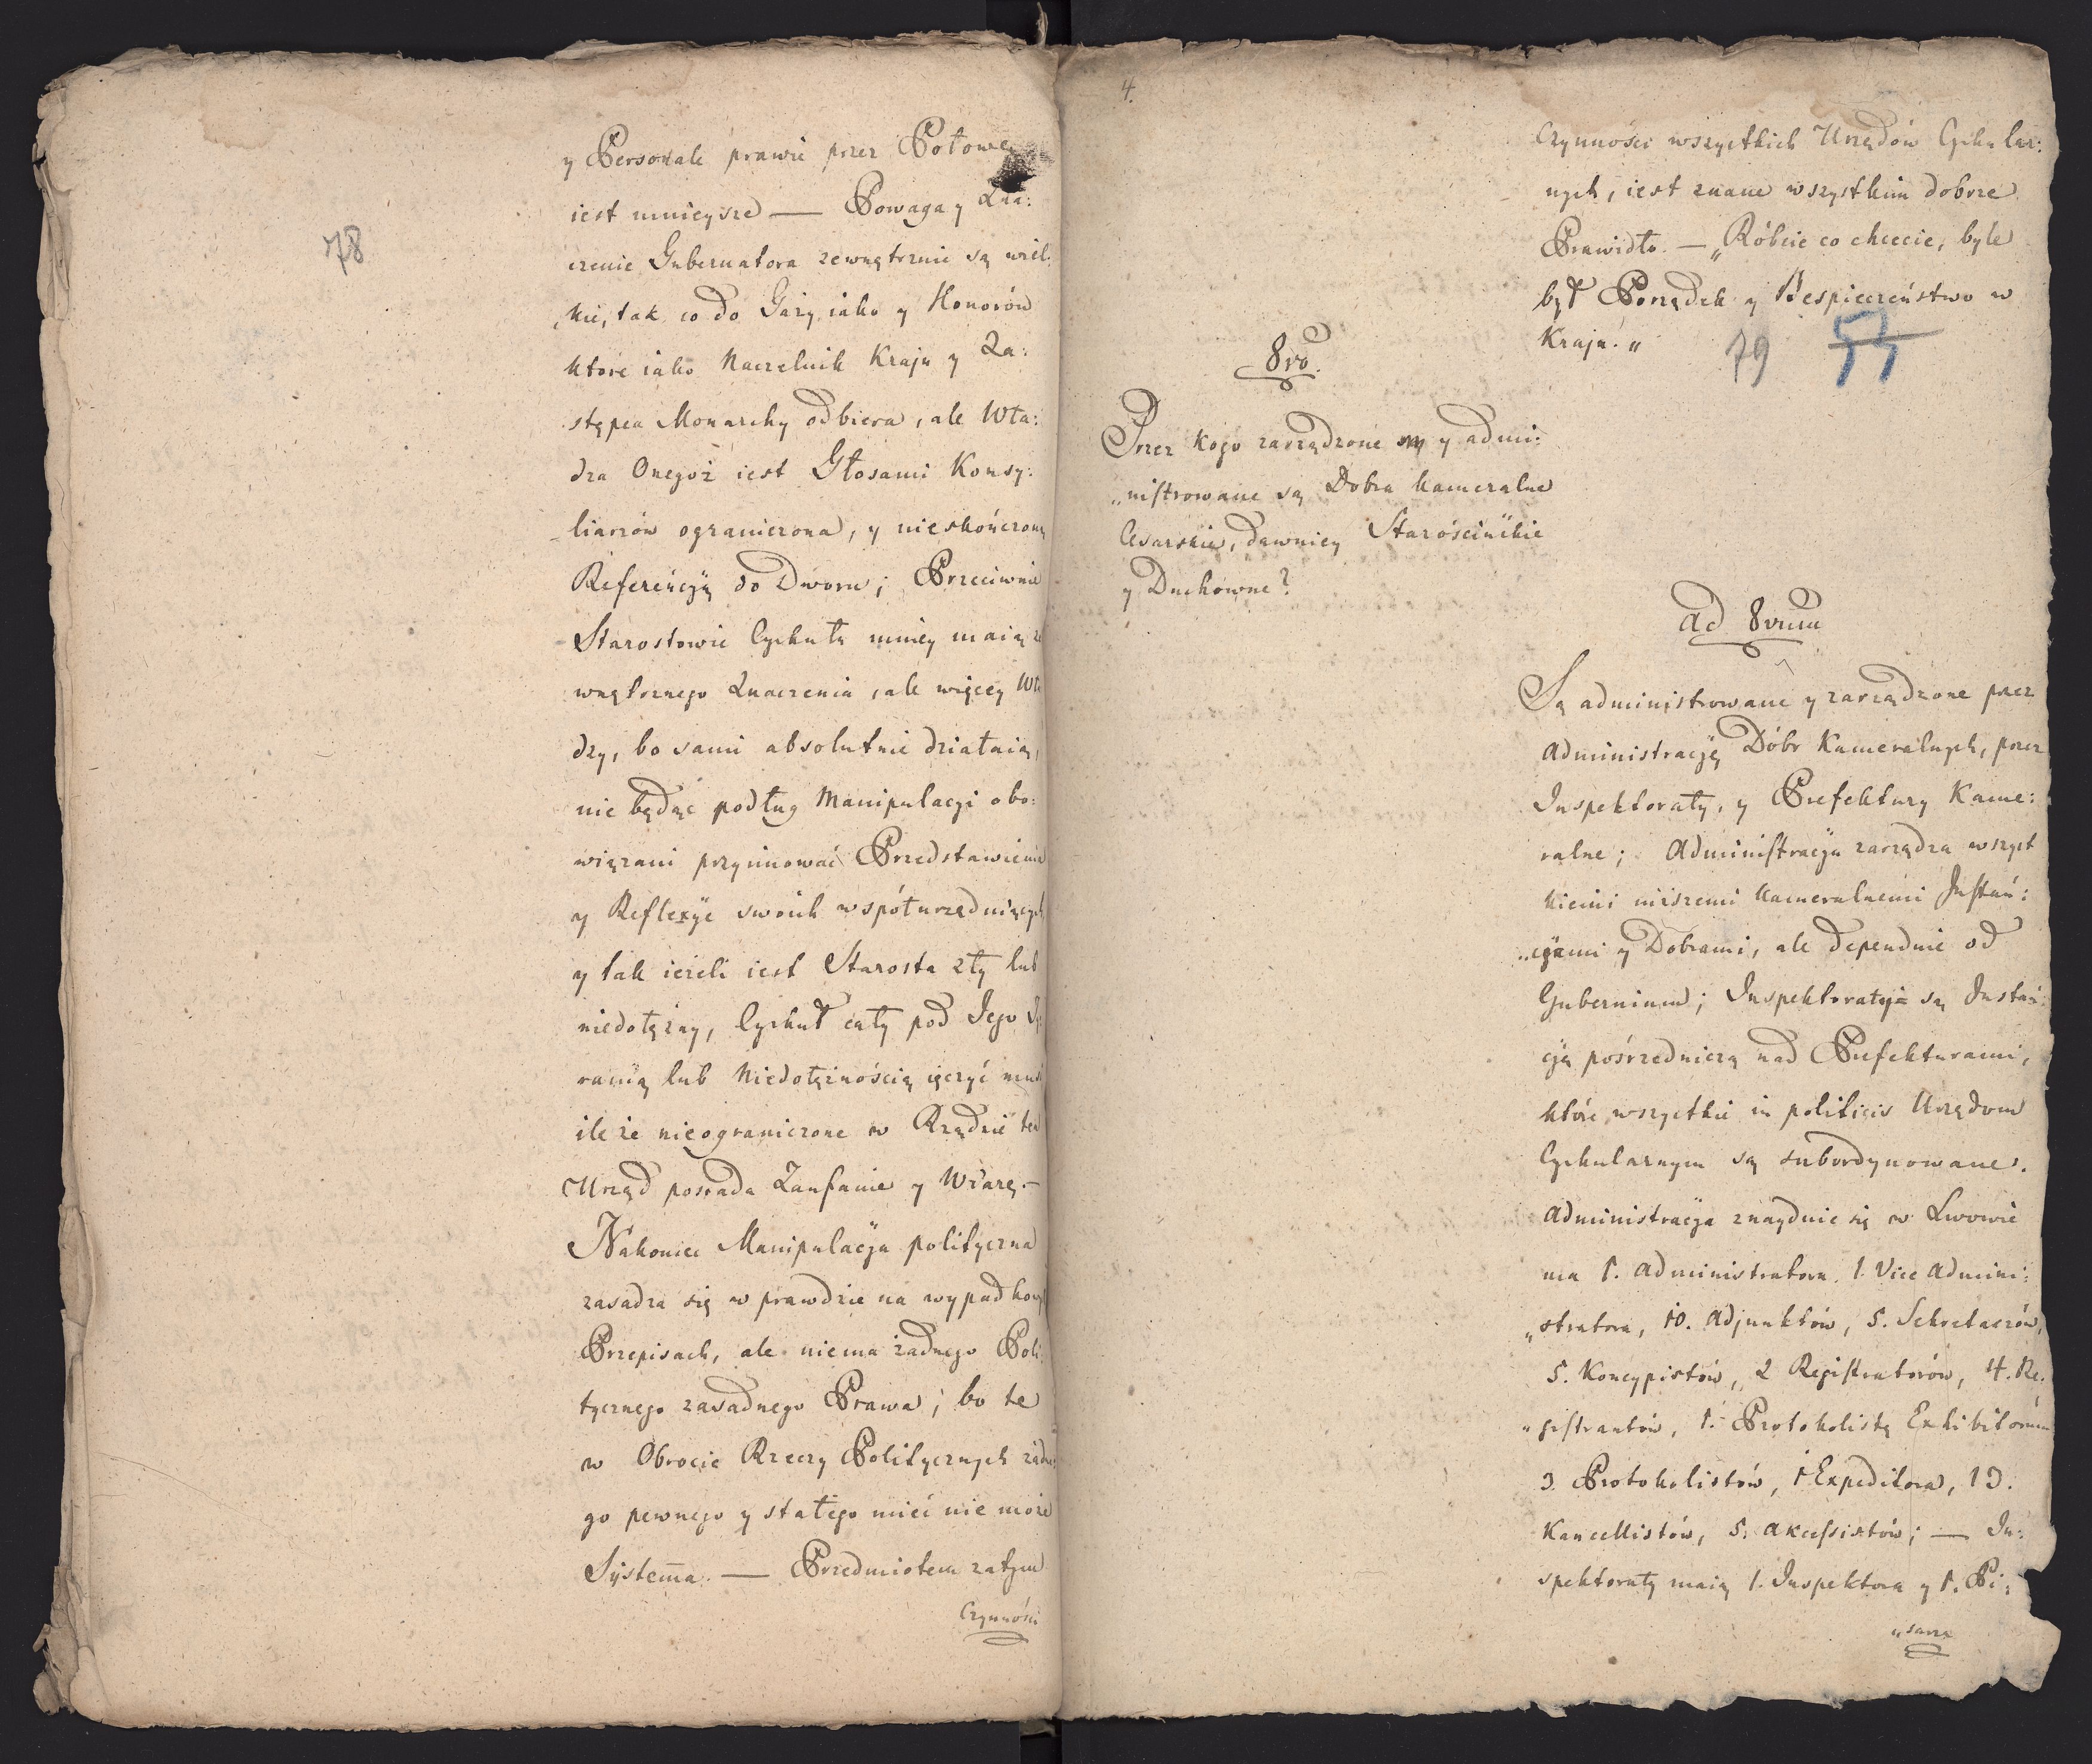 78
y Personale prawie przez Połowę
iest mnieysze — Powaga y Zna:
czenie Gubernatora zewnętrznie są wiel:
kie, tak co do Gaży iako y Honorów
ktore iako Naczelnik Kraju y Za:
stępca Monarchy odbiera, ale Wła:
dza Onegoż iest Głosami Konsy:
liarzów ograniczona, y nieskończoną
Referencyą do Dworu; Przeciwnie
Starostowie Cyrkułu mniey maią ze
wnętrznego Znaczenia, ale więcey Wła
dzy, bo sami absolutnie działaią,
nie będąc podług Manipulacyi obo:
wiązani przyimować Przedstawienia
y Reflexye swoich współurzędniących
y tak ieżeli iest Starosta zły lub
niedołężny, Cyrkuł cały pod Jego
ranią lub Niedołężnością ięczyć musi
ile że nieograniczone w Rządzie ten
Urząd posiada Zaufanie y Wiarę. —
Nakoniec Manipulacya polityczna
zasadza się w prawdzie na wypadkowych
Przepisach, ale niema żadnego Poli
tycznego zasadnego Prawa; bo te
w Obrocie Rzeczy Politycznych żadne:
go pewnego y stałego mieć nie może
Systema. — Przedmiotem zatym
Czynności
4.
Czynności wszystkich Urzędów Cyrkular:
nych, iest znane wszystkim dobrze
Prawidło. — „Róbcie co chcecie, byle
był Porządek y Bespieczeństwo w
Kraju."
79 57
8vo.
Przez kogo zarządzone y admi:
„nistrowane są Dobra Kameralne
Cesarskie, dawniey Starościńskie
y Duchowne?
ad 8vum
Są administrowane y zarządzone przez
Administracyę Dóbr Kameralnych, przez
Inspektoraty, y Prefektury Kame:
ralne; Administracya zarządza wszyst
kiemi niższemi kameralnemi Instan:
„cyami y Dobrami, ale dependuie od
Gubernium; Inspektoraty są Instan:
cyą pośredniczą nad Prefekturami,
które wszystkie in politicis Urzędom
Cyrkularnym są subordynowane.
Administracya znayduie się w Lwowie
ma 1. Administratora. 1. Vice Admini:
„stratora, 10. Adjunktów, 5. Sekretarzów,
5. Koncypistów, 2 Registratorów, 4. Re:
„gistrantów, 1. Protokolistę Exhibitorum
3. Protokolistów, 1 Expeditora, 13.
Kancellistów, 5. Akcessistów; — In:
spektoraty maią 1. Inspektora y 1. Pi:
„sarza